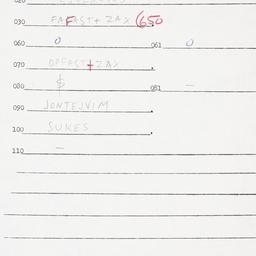 030 FAFAST + ZAX (650
060 0 061 0
070 OPFAST + ZAX
080 $ 081 —
090 JONTEJVIM
100 SUKES
110 —